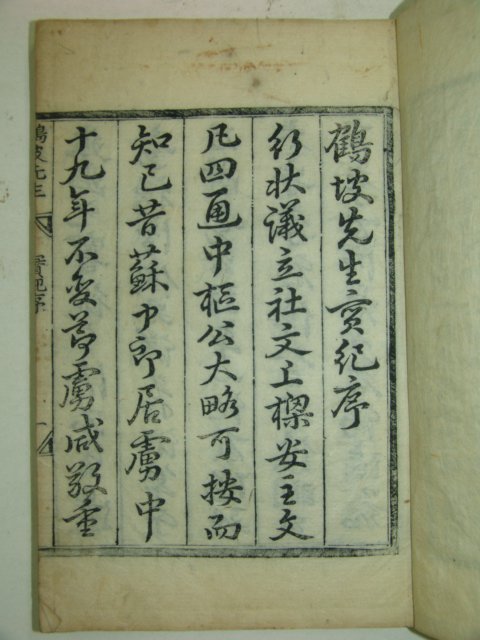 鶴坡先生實紀序
行狀議立社文上樑安主文
凡四通中樞公大略可按而
知已昔蘇中郎居虜中
十九年不变節虜咸敬重
鶴坡先生 實紀序 一